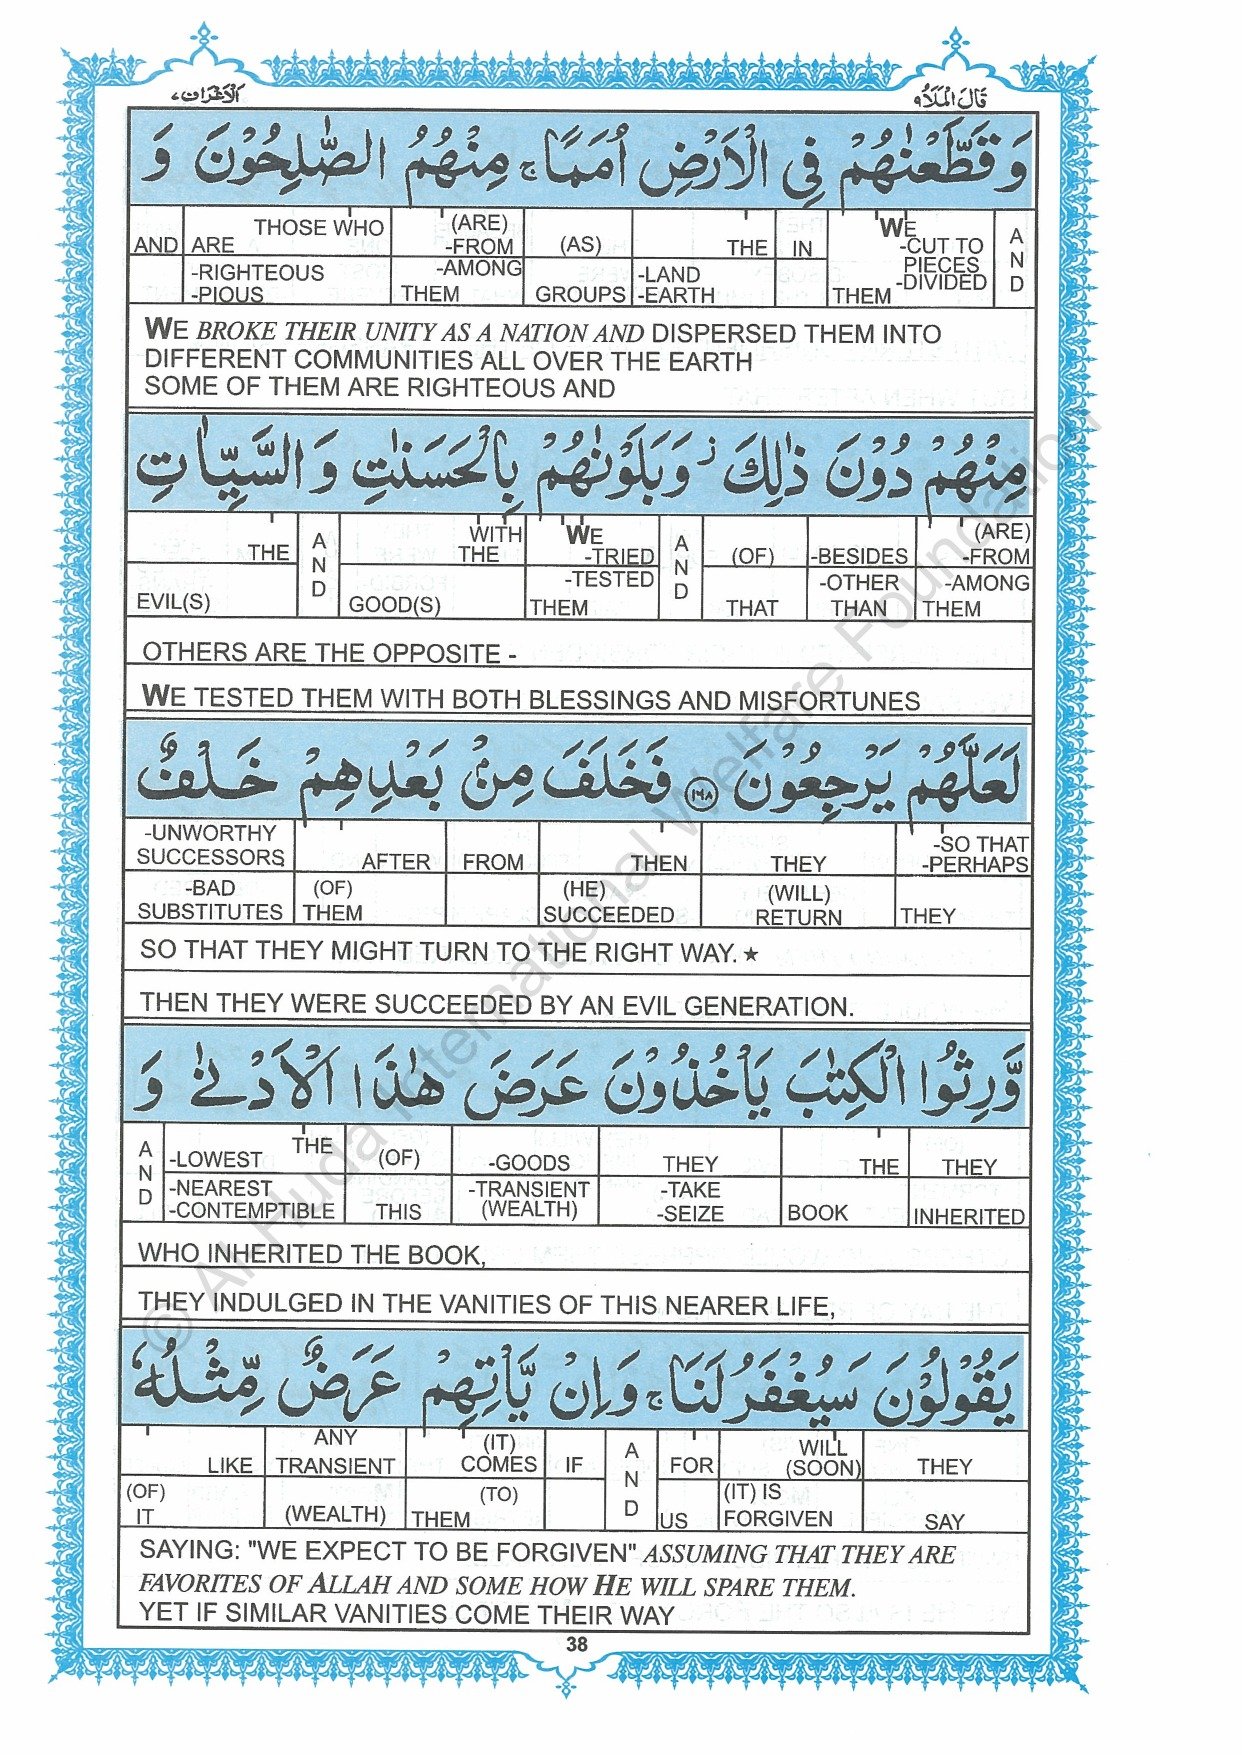 الاعراف ٧
قال الملأ ٩
وَ قَطَّعْنٰهُمْ فِي الْاَرْضِ اُمَمًا ۚ مِنْهُمُ الصّٰلِحُوْنَ وَ
AND
THOSE WHO ARE
-RIGHTEOUS
-PIOUS
(ARE)
-FROM
-AMONG
THEM
(AS)
GROUPS
THE
-LAND
-EARTH
IN
WE
-CUT TO
PIECES
-DIVIDED
THEM
AND
WE BROKE THEIR UNITY AS A NATION AND DISPERSED THEM INTO
DIFFERENT COMMUNITIES ALL OVER THE EARTH
SOME OF THEM ARE RIGHTEOUS AND
مِنْهُمْ دُوْنَ ذٰلِكَ ؗ وَبَلَوْنٰهُمْ بِالْحَسَنٰتِ وَ السَّيِّاٰتِ
THE
EVIL(S)
AND
WITH
THE
GOOD(S)
WE
-TRIED
-TESTED
THEM
AND
(OF)
THAT
-BESIDES
-OTHER
THAN
(ARE)
-FROM
-AMONG
THEM
OTHERS ARE THE OPPOSITE -
WE TESTED THEM WITH BOTH BLESSINGS AND MISFORTUNES
لَعَلَّهُمْ يَرْجِعُوْنَ ۝١٦٨ فَخَلَفَ مِنْۢ بَعْدِهِمْ خَلْفٌ
-UNWORTHY
SUCCESSORS
-BAD
SUBSTITUTES
AFTER
(OF)
THEM
FROM
THEN
(HE)
SUCCEEDED
THEY
(WILL)
RETURN
-SO THAT
-PERHAPS
THEY
SO THAT THEY MIGHT TURN TO THE RIGHT WAY. ★
THEN THEY WERE SUCCEEDED BY AN EVIL GENERATION.
وَّرِثُوا الْكِتٰبَ يَاْخُذُوْنَ عَرَضَ هٰذَا الْاَدْنٰى وَ
AND
THE
-LOWEST
-NEAREST
-CONTEMPTIBLE
(OF)
THIS
-GOODS
-TRANSIENT
(WEALTH)
THEY
-TAKE
-SEIZE
THE
BOOK
THEY
INHERITED
WHO INHERITED THE BOOK,
THEY INDULGED IN THE VANITIES OF THIS NEARER LIFE,
يَقُوْلُوْنَ سَيُغْفَرُ لَنَا ۚ وَاِنْ يَّاْتِهِمْ عَرَضٌ مِّثْلُهٗ
LIKE
(OF)
IT
ANY
TRANSIENT
(WEALTH)
(IT)
COMES
(TO)
THEM
IF
AND
FOR
US
WILL
(SOON)
(IT) IS
FORGIVEN
THEY
SAY
SAYING: "WE EXPECT TO BE FORGIVEN" ASSUMING THAT THEY ARE
FAVORITES OF ALLAH AND SOME HOW HE WILL SPARE THEM.
YET IF SIMILAR VANITIES COME THEIR WAY
38
© Al Huda International Welfare Foundation